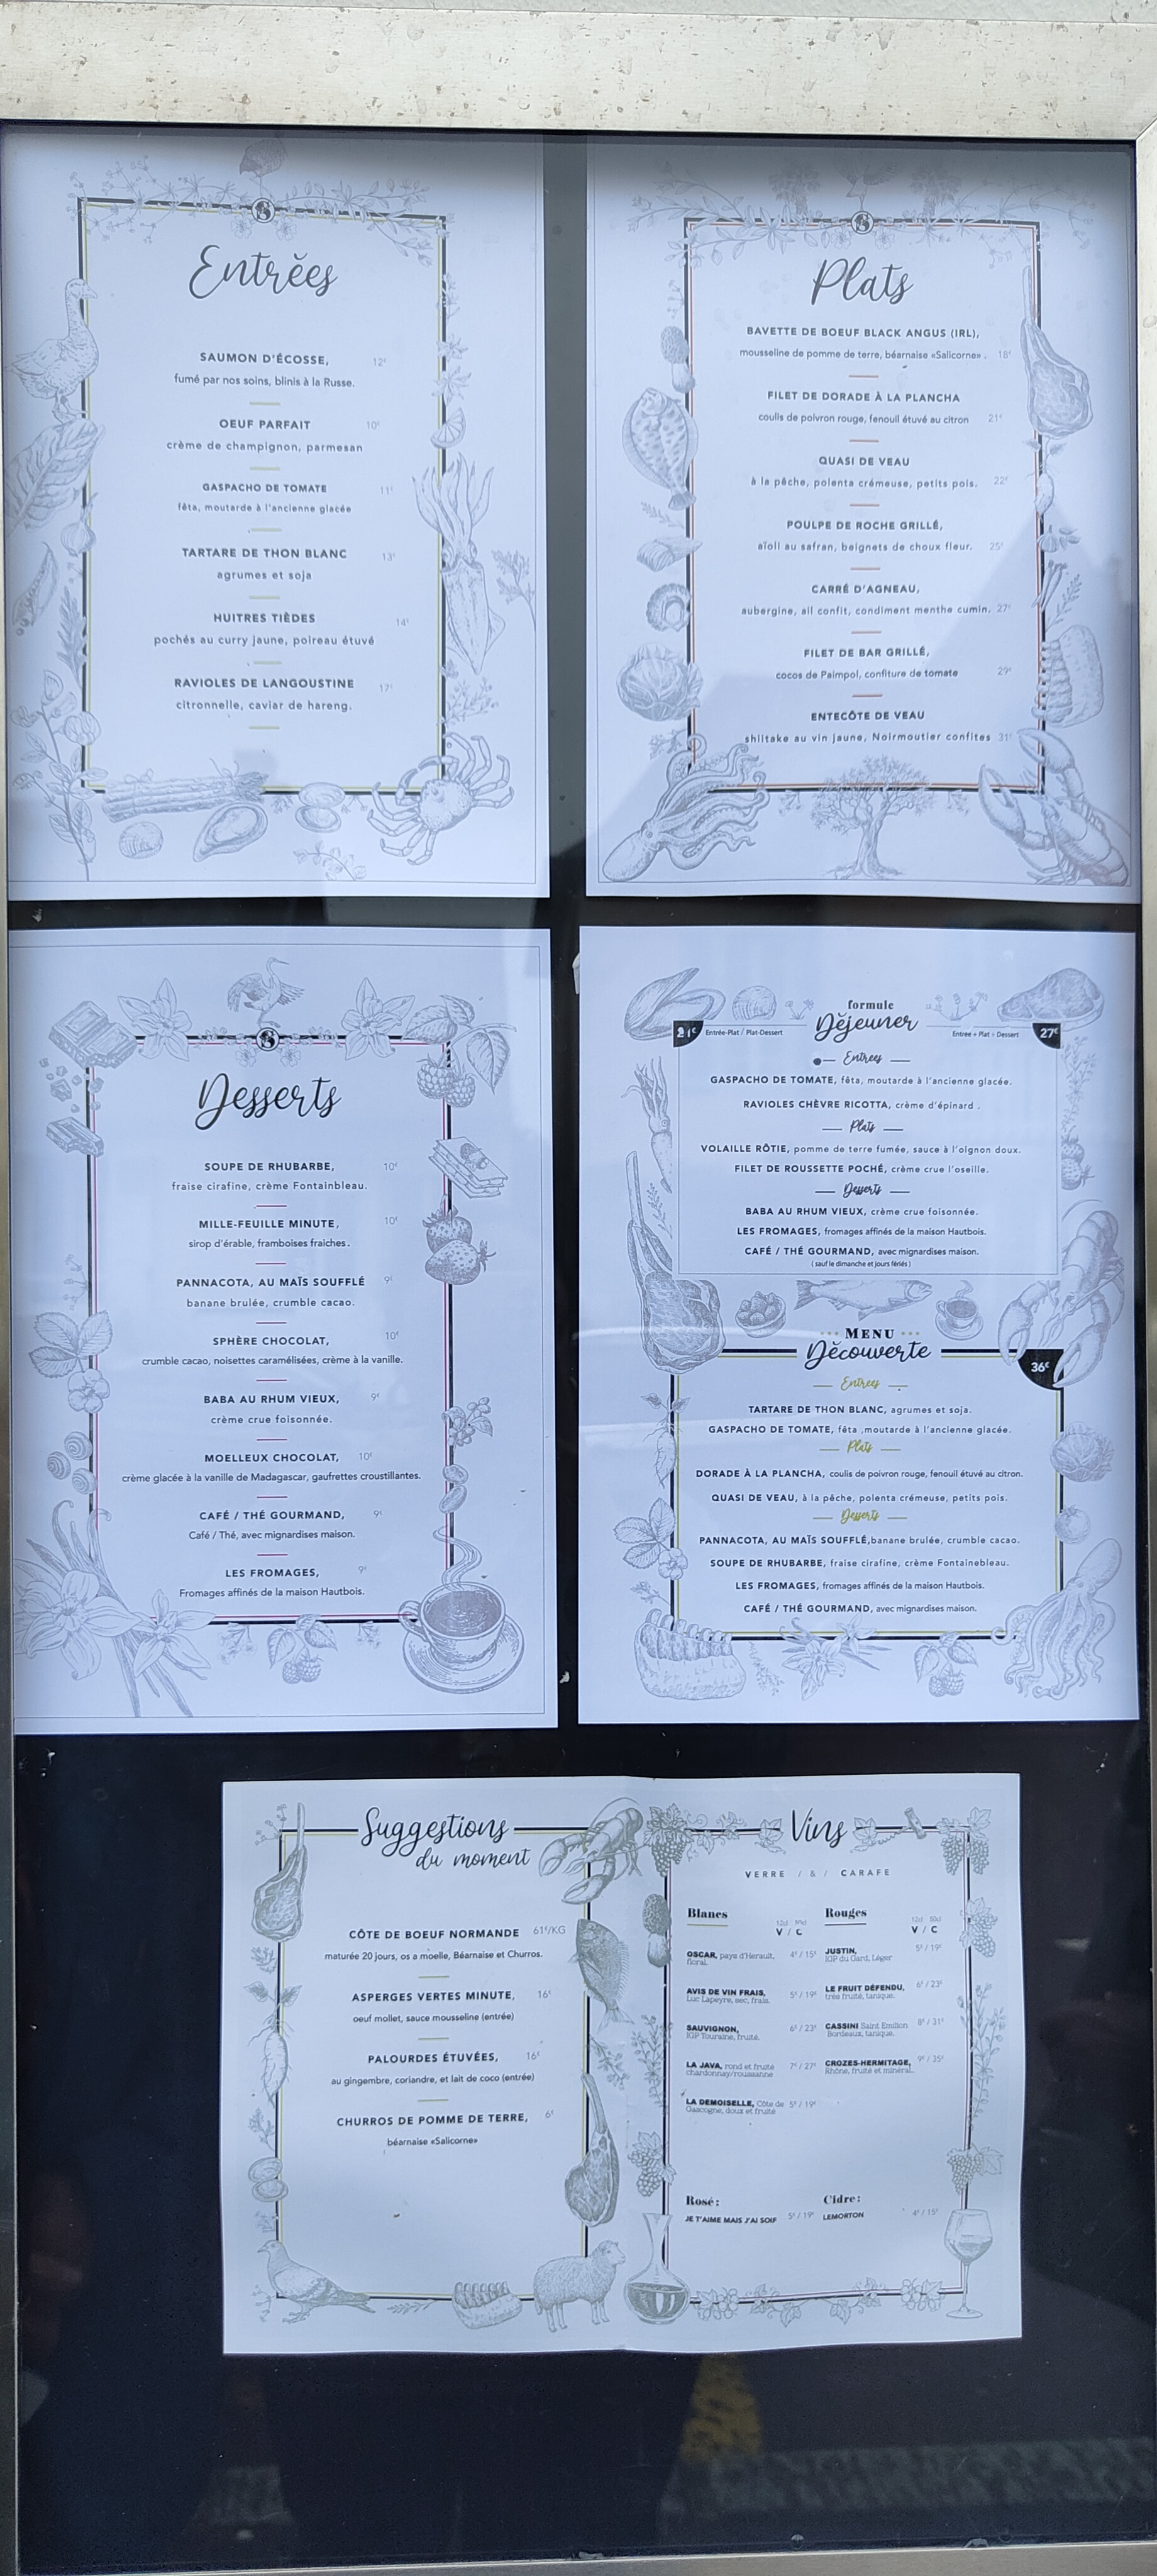 Entrées
SAUMON D'ÉCOSSE, 12€
fumé par nos soins, blinis à la Russe.
OEUF PARFAIT 10€
crème de champignon, parmesan
GASPACHO DE TOMATE 11€
fêta, moutarde à l'ancienne glacée
TARTARE DE THON BLANC 13€
agrumes et soja
HUITRES TIÈDES 14€
pochés au curry jaune, poireau étuvé
RAVIOLES DE LANGOUSTINE 17€
citronnelle, caviar de hareng.
Plats
BAVETTE DE BOEUF BLACK ANGUS (IRL),
mousseline de pomme de terre, béarnaise «Salicorne» . 18€
FILET DE DORADE À LA PLANCHA
coulis de poivron rouge, fenouil étuvé au citron 21€
QUASI DE VEAU
à la pêche, polenta crémeuse, petits pois. 22€
POULPE DE ROCHE GRILLÉ,
aïoli au safran, beignets de choux fleur. 25€
CARRÉ D'AGNEAU,
aubergine, ail confit, condiment menthe cumin. 27€
FILET DE BAR GRILLÉ,
cocos de Paimpol, confiture de tomate 29€
ENTECÔTE DE VEAU
shiitake au vin jaune, Noirmoutier confites 31€
Desserts
SOUPE DE RHUBARBE, 10€
fraise cirafine, crème Fontainbleau.
MILLE-FEUILLE MINUTE, 10€
sirop d'érable, framboises fraiches.
PANNACOTA, AU MAÏS SOUFFLÉ 9€
banane brulée, crumble cacao.
SPHÈRE CHOCOLAT, 10€
crumble cacao, noisettes caramélisées, crème à la vanille.
BABA AU RHUM VIEUX, 9€
crème crue foisonnée.
MOELLEUX CHOCOLAT, 10€
crème glacée à la vanille de Madagascar, gaufrettes croustillantes.
CAFÉ / THÉ GOURMAND, 9€
Café / Thé, avec mignardises maison.
LES FROMAGES, 9€
Fromages affinés de la maison Hautbois.
formule
Déjeuner
21€ Entrée-Plat / Plat-Dessert
Entrée + Plat + Dessert 27€
Entrees
GASPACHO DE TOMATE, fêta, moutarde à l'ancienne glacée.
RAVIOLES CHÈVRE RICOTTA, crème d'épinard .
Plats
VOLAILLE RÔTIE, pomme de terre fumée, sauce à l'oignon doux.
FILET DE ROUSSETTE POCHÉ, crème crue l'oseille.
Desserts
BABA AU RHUM VIEUX, crème crue foisonnée.
LES FROMAGES, fromages affinés de la maison Hautbois.
CAFÉ / THÉ GOURMAND, avec mignardises maison.
( sauf le dimanche et jours fériés )
MENU
Découverte
36€
Entrees
TARTARE DE THON BLANC, agrumes et soja.
GASPACHO DE TOMATE, fêta ,moutarde à l'ancienne glacée.
Plats
DORADE À LA PLANCHA, coulis de poivron rouge, fenouil étuvé au citron.
QUASI DE VEAU, à la pêche, polenta crémeuse, petits pois.
Desserts
PANNACOTA, AU MAÏS SOUFFLÉ,banane brulée, crumble cacao.
SOUPE DE RHUBARBE, fraise cirafine, crème Fontainebleau.
LES FROMAGES, fromages affinés de la maison Hautbois.
CAFÉ / THÉ GOURMAND, avec mignardises maison.
Suggestions
du moment
CÔTE DE BOEUF NORMANDE 61€/KG
maturée 20 jours, os a moelle, Béarnaise et Churros.
ASPERGES VERTES MINUTE, 16€
oeuf mollet, sauce mousseline (entrée)
PALOURDES ÉTUVÉES, 16€
au gingembre, coriandre, et lait de coco (entrée)
CHURROS DE POMME DE TERRE, 6€
béarnaise «Salicorne»
Vins
VERRE / & / CARAFE
Blancs
12cl 50cl
V / C
OSCAR, pays d'Herault, 4€ / 15€
floral.
AVIS DE VIN FRAIS, 5€ / 19€
Luc Lapeyre, sec, frais.
SAUVIGNON, 6€ / 23€
IGP Touraine, fruité.
LA JAVA, rond et fruité 7€ / 27€
chardonnay/roussanne
LA DEMOISELLE, Côte de 5€ / 19€
Gascogne, doux et fruité
Rouges
12cl 50cl
V / C
JUSTIN, 5€ / 19€
IGP du Gard, Léger
LE FRUIT DÉFENDU, 6€ / 23€
très fruité, tanique.
CASSINI Saint Emilion 8€ / 31€
Bordeaux, tanique.
CROZES-HERMITAGE, 9€ / 35€
Rhône, fruité et minéral.
Rosé:
JE T'AIME MAIS J'AI SOIF 5€ / 19€
Cidre:
LEMORTON 4€ / 15€